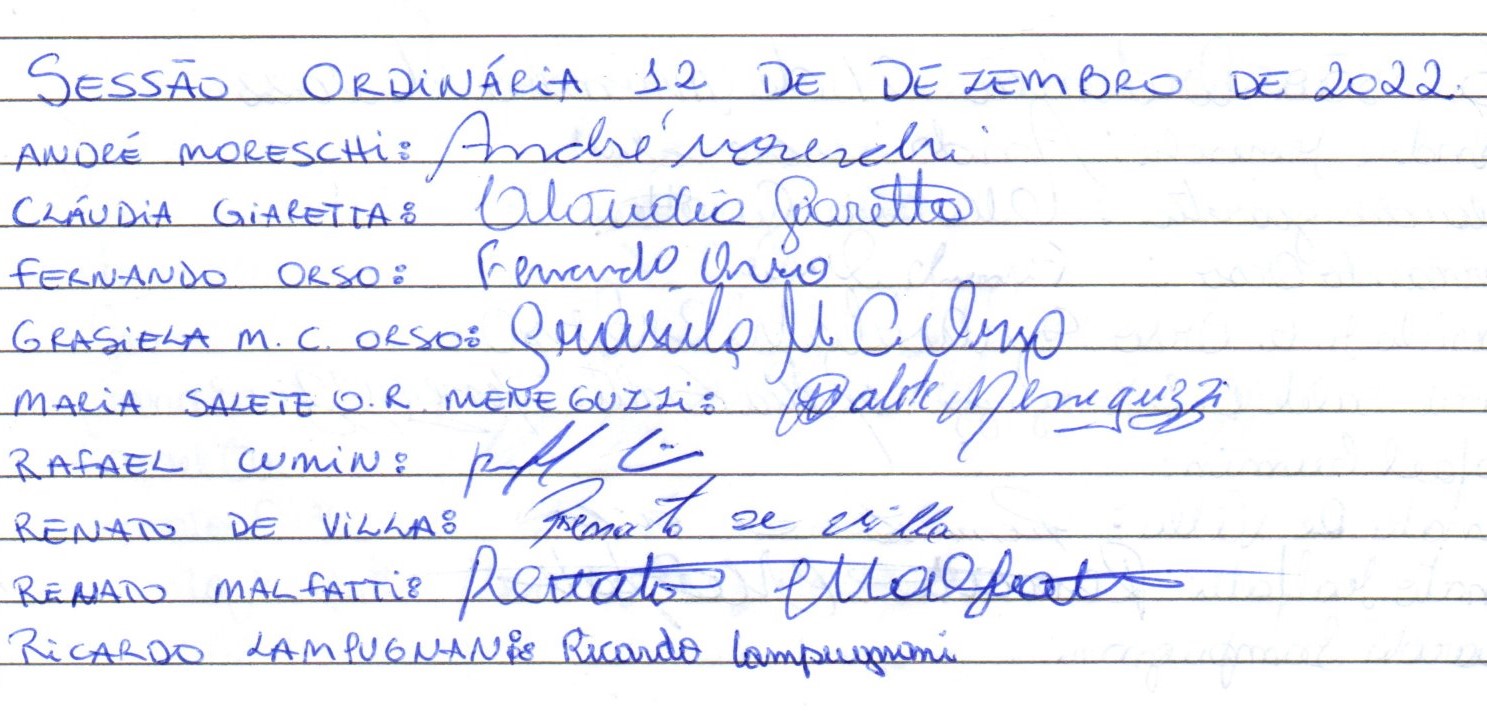 SESSÃO ORDINÁRIA 12 DE DEZEMBRO DE 2022.
ANDRÉ MORESCHI: André Moreschi
CLÁUDIA GIARETTA: Cláudia Giaretta
FERNANDO ORSO: Fernando Orso
GRASIELA M. C. ORSO: Grasiela M C Orso
MARIA SALETE O.R. MENEGUZZI: Salete Meneguzzi
RAFAEL CUMIN:
RENATO DE VILLA: Renato de villa
RENATO MALFATTI: Renato Malfatti
RICARDO LAMPUGNANI: Ricardo Lampugnani